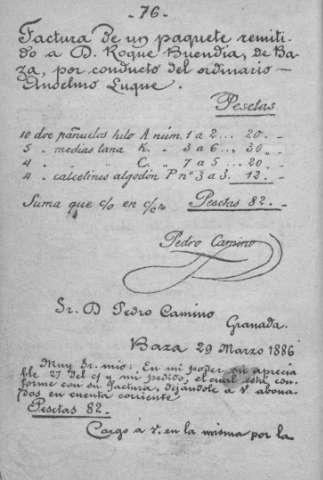 - 76 -
Factura de un paquete remiti-
do a D. Roque Buendia, de Ba-
za, por conducto del ordinario -
Anselmo Luque.
Pesetas
10 doc pañuelos hilo A núm. 1 a 2 ... 20. -
5 " medias lana K. " 3 a 6 ... 30 " -
4 " " " C. " 7 a 5 ... 20 " -
4 " calcetines algodón P nº 3 a 3. 12. -
Suma que c/o en c/c Pesetas 82. -
Pedro Camino
Sr. D Pedro Camino
Granada.
Baza 29 Marzo 1886
Muy Sr. mio: En mi poder su aprecia
ble 27 del c/ y mi pedido, el cual está con-
forme con su factura, dejándole a V. abona-
das en cuenta corriente
Pesetas 82.
Cargo á V. en la misma por la